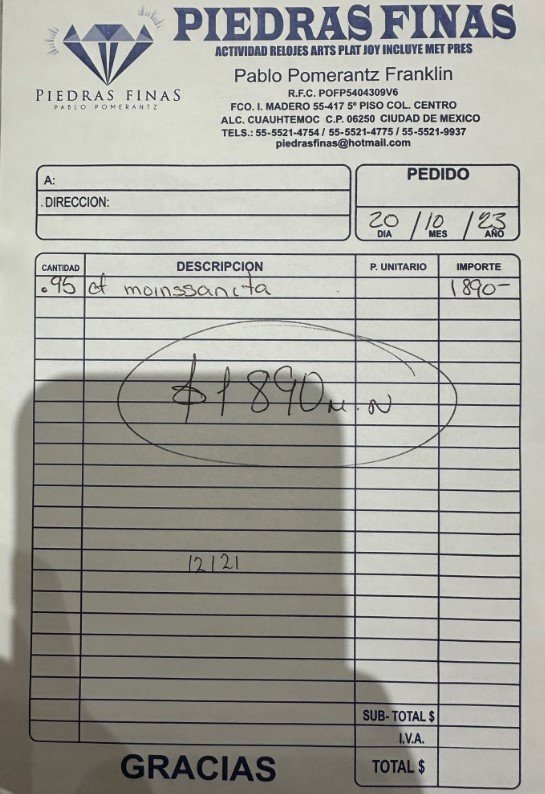 PIEDRAS FINAS
ACTIVIDAD RELOJES ARTS PLAT JOY INCLUYE MET PRES
PIEDRAS FINAS
PABLO POMERANTZ
Pablo Pomerantz Franklin
R.F.C. POFP5404309V6
FCO. I. MADERO 55-417 5º PISO COL. CENTRO
ALC. CUAUHTEMOC C.P. 06250 CIUDAD DE MEXICO
TELS.: 55-5521-4754 / 55-5521-4775 / 55-5521-9937
piedrasfinas@hotmail.com
A:
.DIRECCION:
PEDIDO
20 / 10 / 23
DIA MES AÑO
CANTIDAD DESCRIPCION P. UNITARIO IMPORTE
.95 ct moinssanita 1890-
$1890 M.N
12121
SUB- TOTAL $
I.V.A.
TOTAL $
GRACIAS